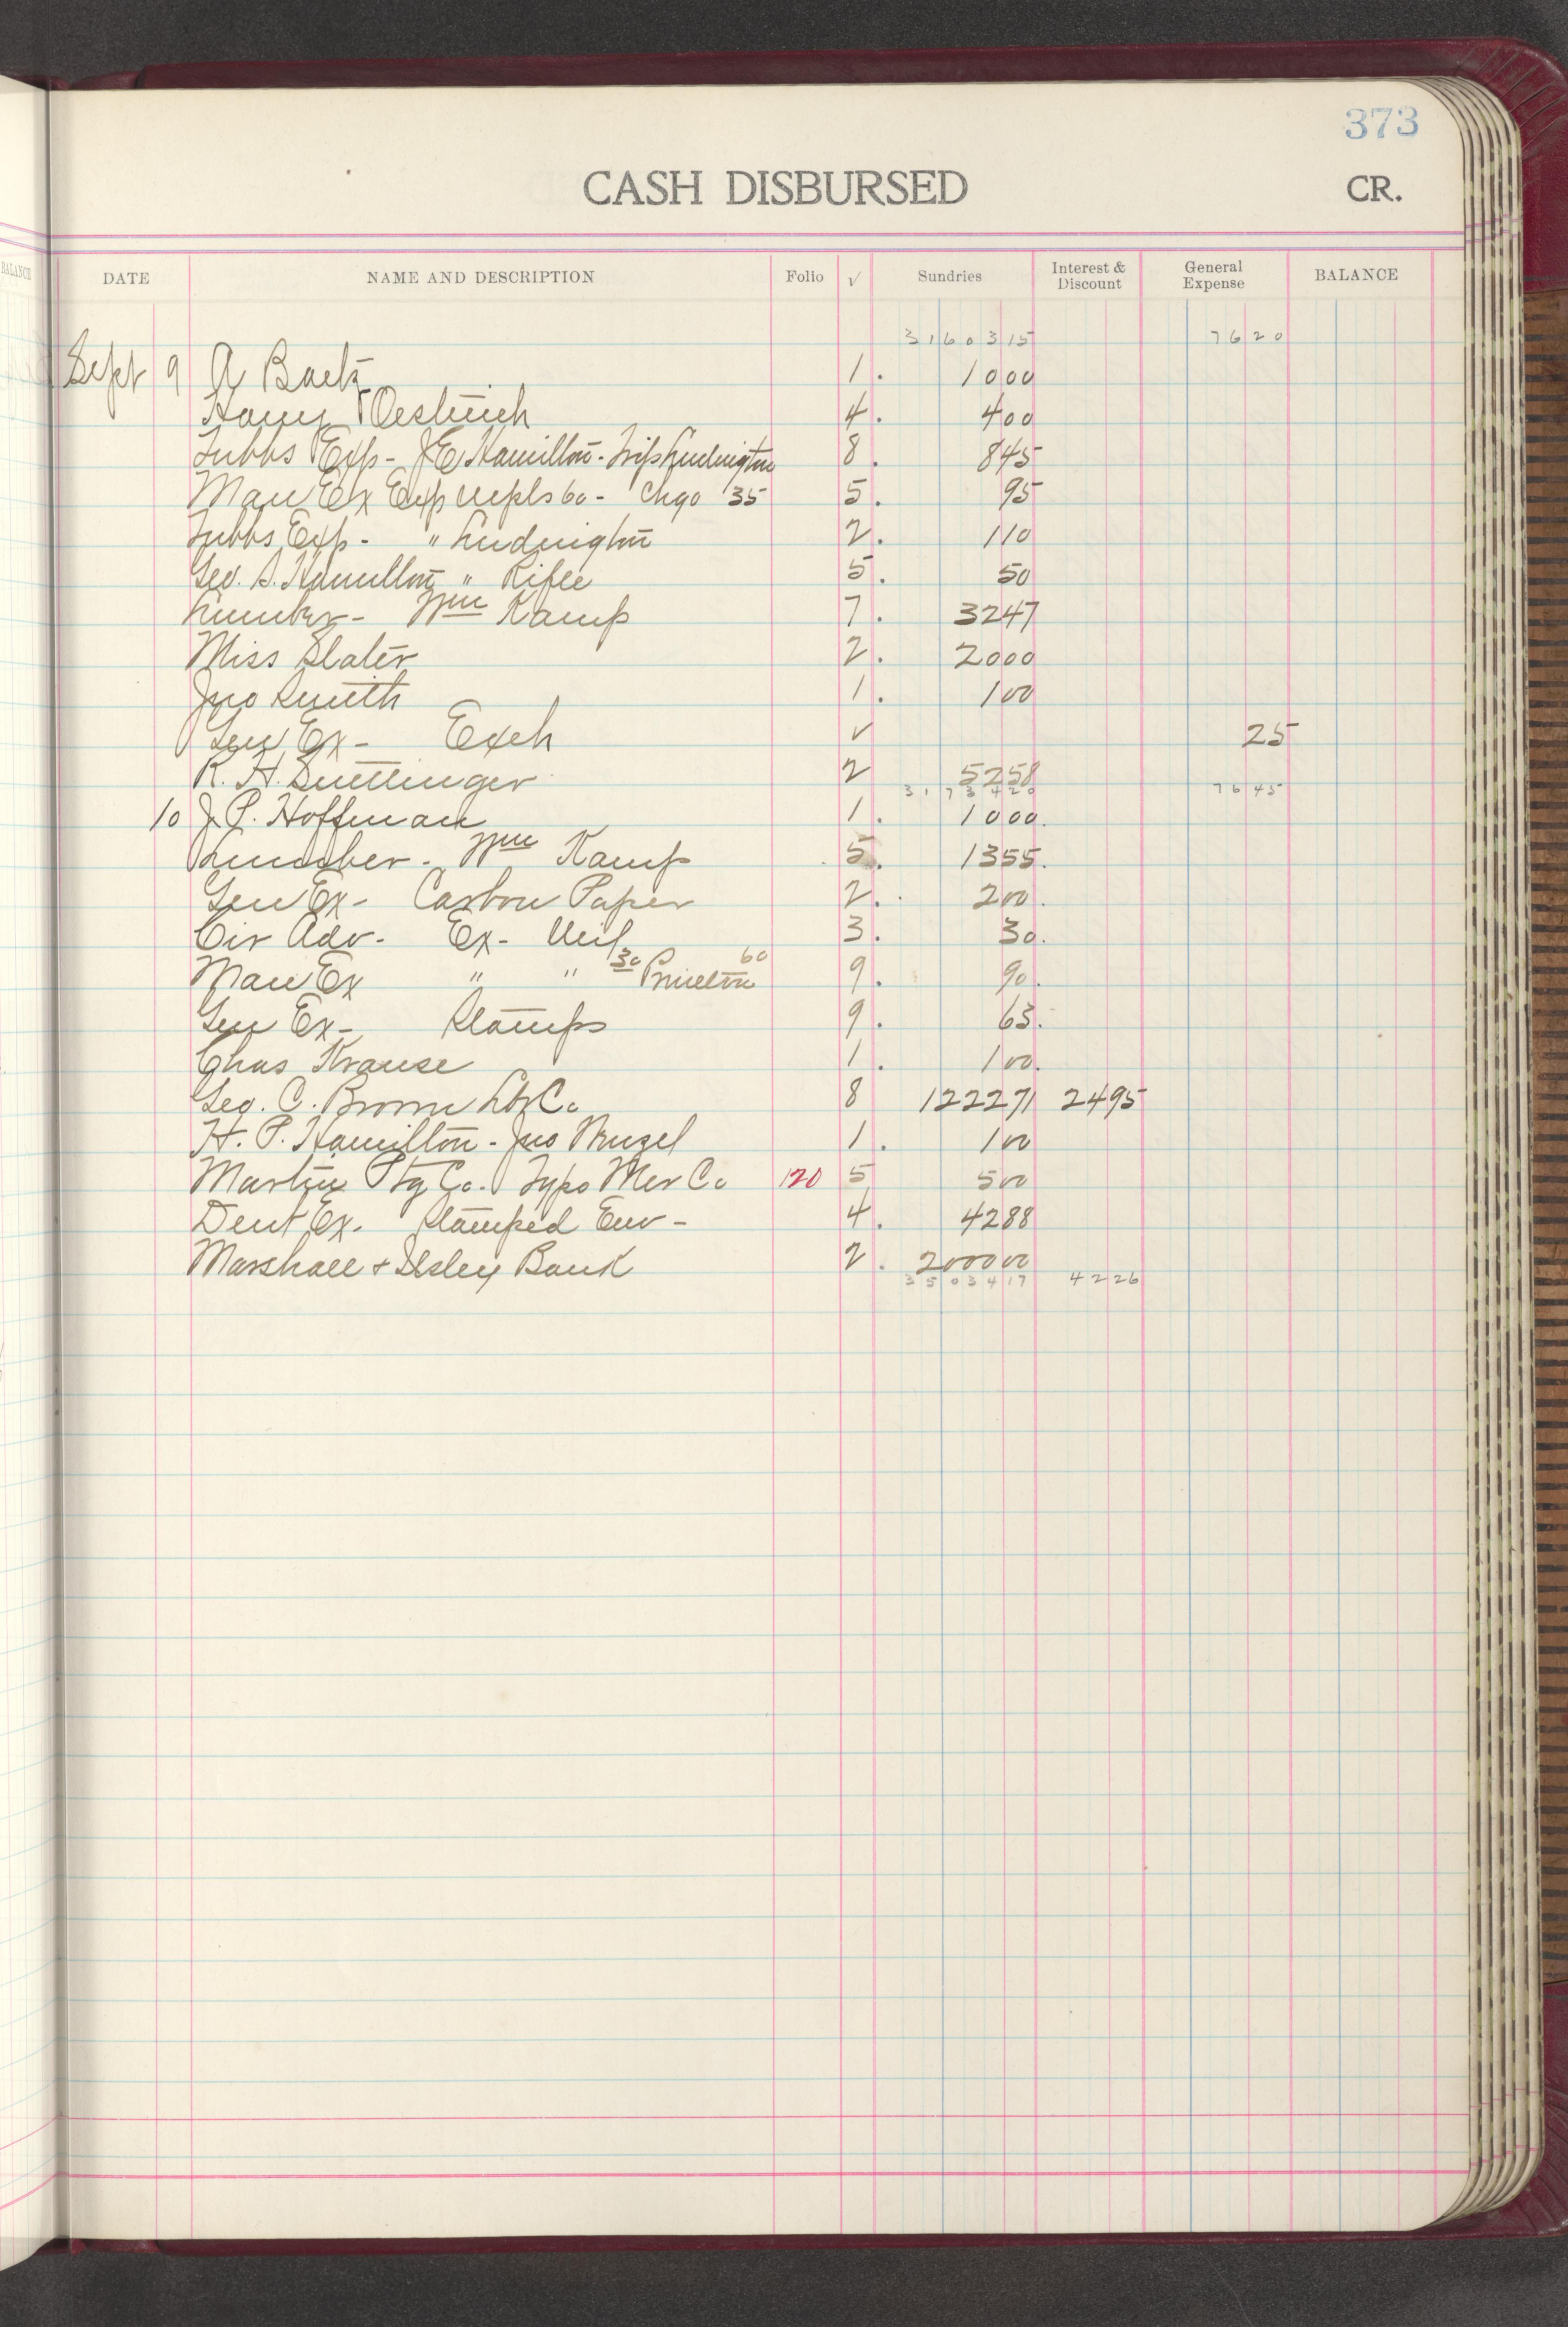 373
CASH DISBURSED CR.
BALANCE
DATE NAME AND DESCRIPTION Folio √ Sundries Interest & Discount General Expense BALANCE
31603 15 76 20
Sept 9 A Baetz 1. 10 00
Harry Oestreich 4. 4 00
Tubbs Exp - J E Hamilton - Trip Ludington 8. 8 45
Man Ex Exp Mpls 60 - Chgo 35 5. 95
Tubbs Exp - " Ludington 2. 1 10
Geo. S. Hamilton " Rifle 5. 50
Lumber - Wm Kamp 7. 32 47
Miss Slater 2. 20 00
Jno Smith 1. 1 00
Gen Ex - Exch √ 25
R. H. 2 52 58
31734 20 76 45
10 J. P. Hoffman 1. 10 00.
Lumber - Wm Kamp 5. 13 55.
Gen Ex - Carbon Paper 2. 2 00.
Cir Adv - Ex - 3. 30.
Man Ex " " 30 Princeton 60 9. 90.
Gen Ex - Stamps 9. 63.
Chas Krause 1. 1 00.
Geo. C. Brown Lbr Co 8 1222 71 24 95
H. P. Hamilton - Jno Wenzel 1. 1 00
Martin Ptg Co. Typo Mer Co 120 5 5 00
Dent Ex. Stamped Env - 4. 42 88
Marshall & Ilsley Bank 2. 2000 00
35034 17 42 26